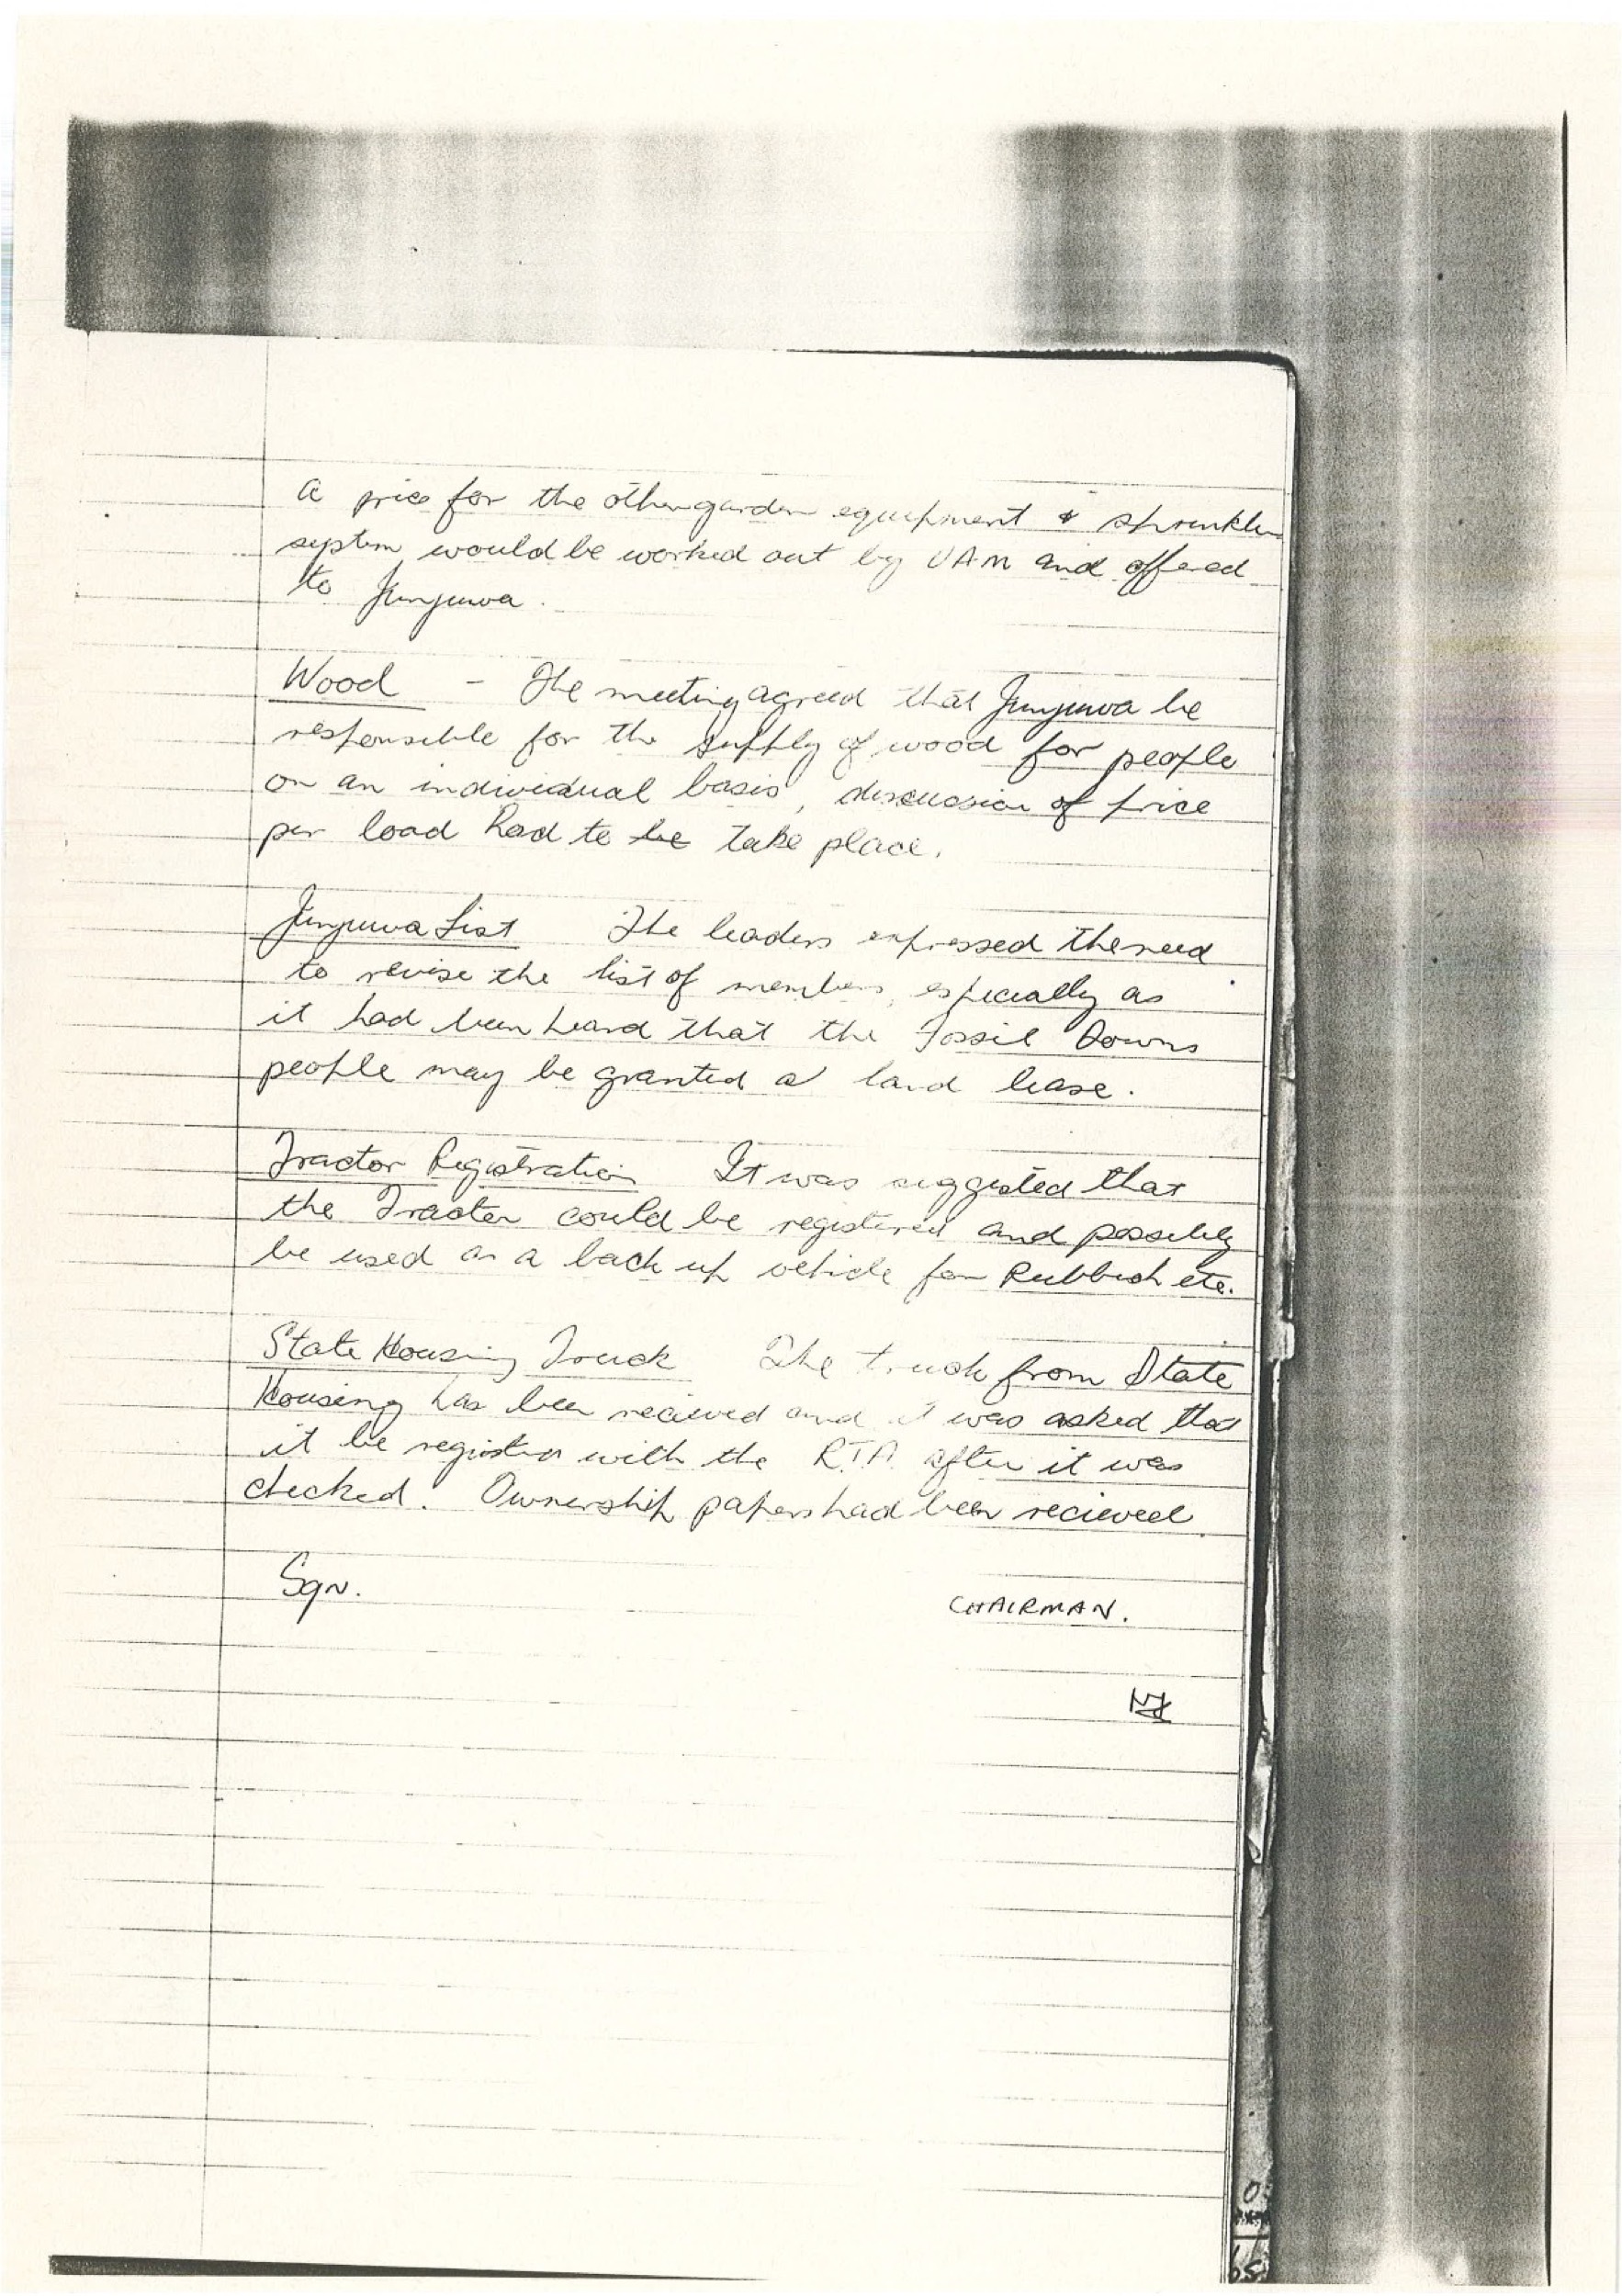 A price for the other garden equipment & sprinkler
system would be worked out by UAM and offered
to Junjuwa.
Wood - The meeting agreed that Junjuwa be
responsible for the supply of wood for people
on an individual basis, discussion of price
per load had to be take place.
Junjuwa List The leaders expressed the need
to revise the list of members, especially as
it had been heard that the Fossil Downs
people may be granted a land lease.
Tractor Registration It was suggested that
the Tractor could be registered and possibly
be used as a back up vehicle for Rubbish etc.
State Housing Truck The truck from State
Housing has been recieved and it was asked that
it be register with the R.T.A. after it was
checked. Ownership papers had been recieved.
Sgn.
CHAIRMAN.